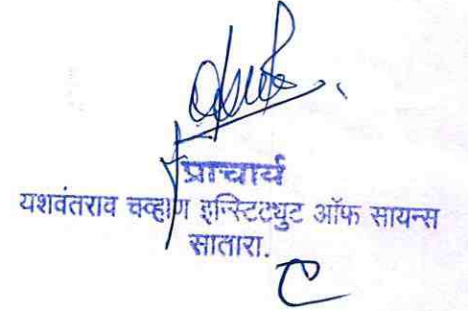 प्राचार्य
यशवंतराव चव्हाण इन्स्टिटयुट ऑफ सायन्स
सातारा.